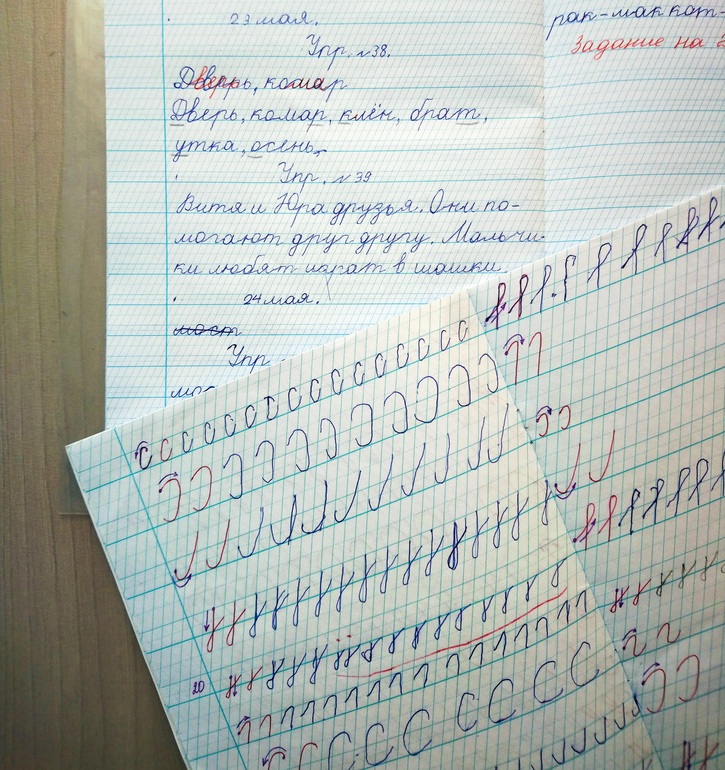 23 мая.
Упр. №38.
Дверь, комар
Дверь, комар, клён, брат,
утка, осень.
Упр. №39
Витя и Юра друзья. Они по-
могают друг другу. Мальчи-
ки любят играт в шашки.
24 мая.
мост
Упр
мос
рак-мак кот-
Задание на 2
20